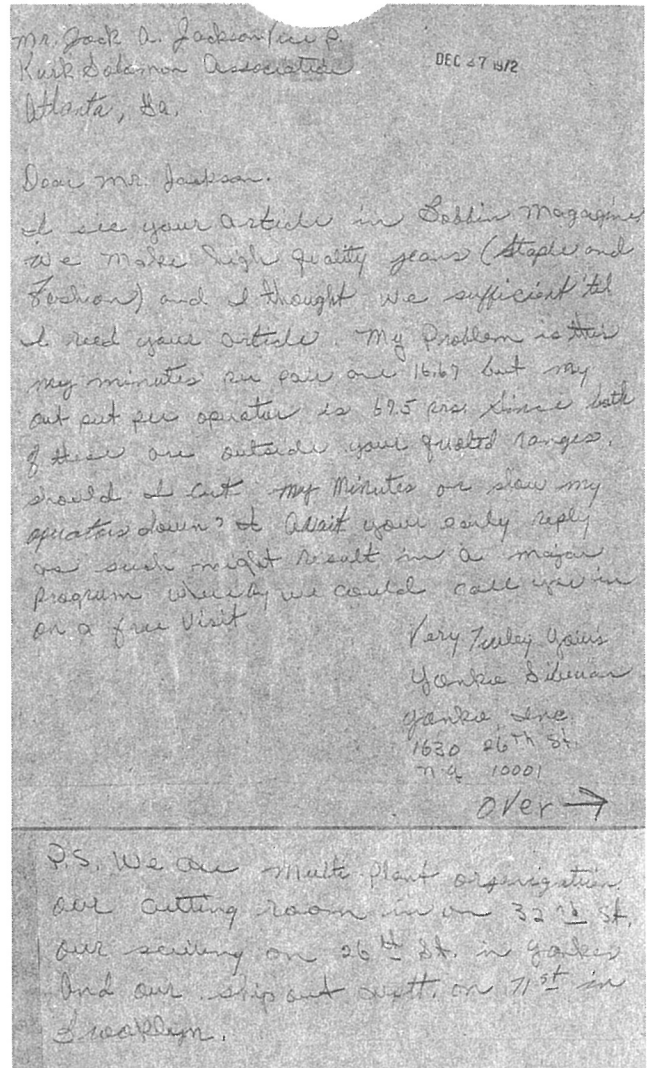 Mr. Jack A. Jackson Vice P.
Kurk Salamon Association
Atlanta, Ga.
DEC 27 1972
Dear Mr. Jackson.
I see your article in Bobbin Magazine
We make high quality jeans (Staple and
Fashion) and I thought we sufficient 'til
I read your article. My Problem is this
my minutes per pair are 16.67 but my
out put per operator is 67.5 prs. Since both
of these are outside your quoted ranges,
should I cut my Minutes or slow my
operators down? I await your early reply
as such might result in a major
program whereby we could call you in
on a free visit
Very Truley Yours
Yankie
Yankie Inc.
1630 26th St.
N.Y. 10001
over →
P.S. We are Multi Plant orginization
our cutting room in on 32nd St.
our on 26th St. in Yonkes
And our ship out on 71st in
Brooklem.